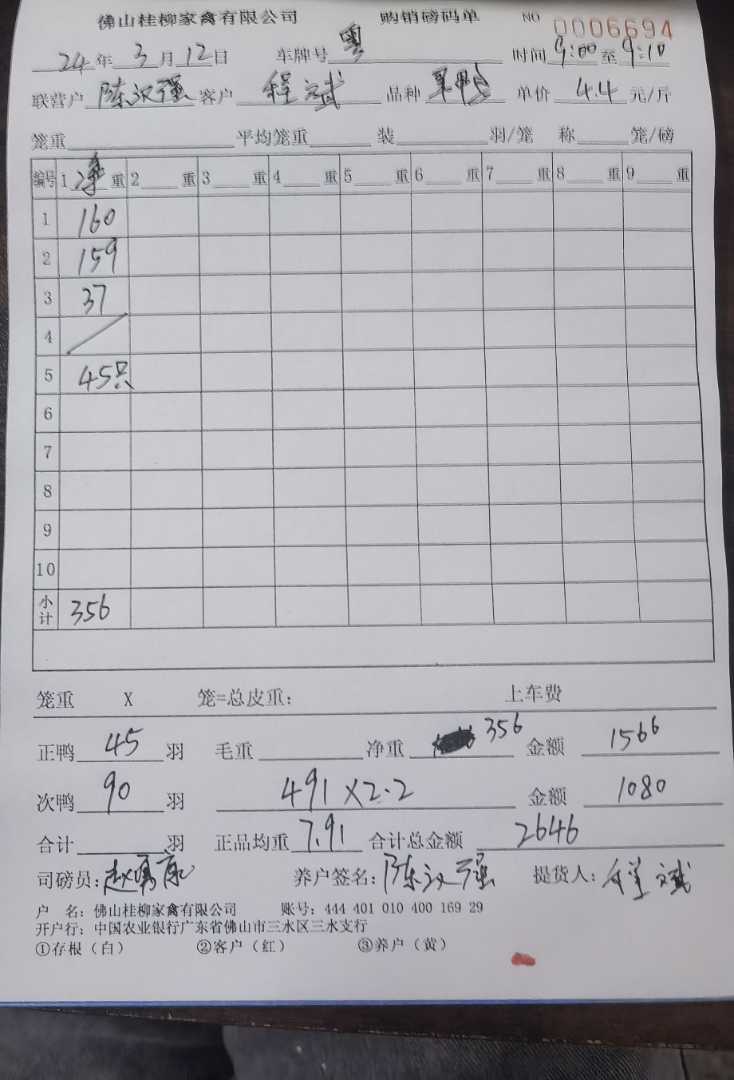 佛山桂柳家禽有限公司 购销磅码单 NO 0006694
24年3月12日 车牌号 粤 时间 9:00 至 9:10
联营户 陈汉强 客户 程斌 品种 单价 4.4 元/斤
笼重 平均笼重 装 羽/笼 称 笼/磅
编号 1 净 重 2 重 3 重 4 重 5 重 6 重 7 重 8 重 9 重
1 160
2 159
3 37
4 /
5 45只
6
7
8
9
10
小计 356
笼重 X 笼=总皮重: 上车费
正鸭 45 羽 毛重 净重 356 金额 1566
次鸭 90 羽 491×2.2 金额 1080
合计 羽 正品均重 7.91 合计总金额 2646
司磅员: 养户签名: 陈汉强 提货人: 程斌
户 名: 佛山桂柳家禽有限公司 账号: 444 401 010 400 169 29
开户行: 中国农业银行广东省佛山市三水区三水支行
①存根（白） ②客户（红） ③养户（黄）